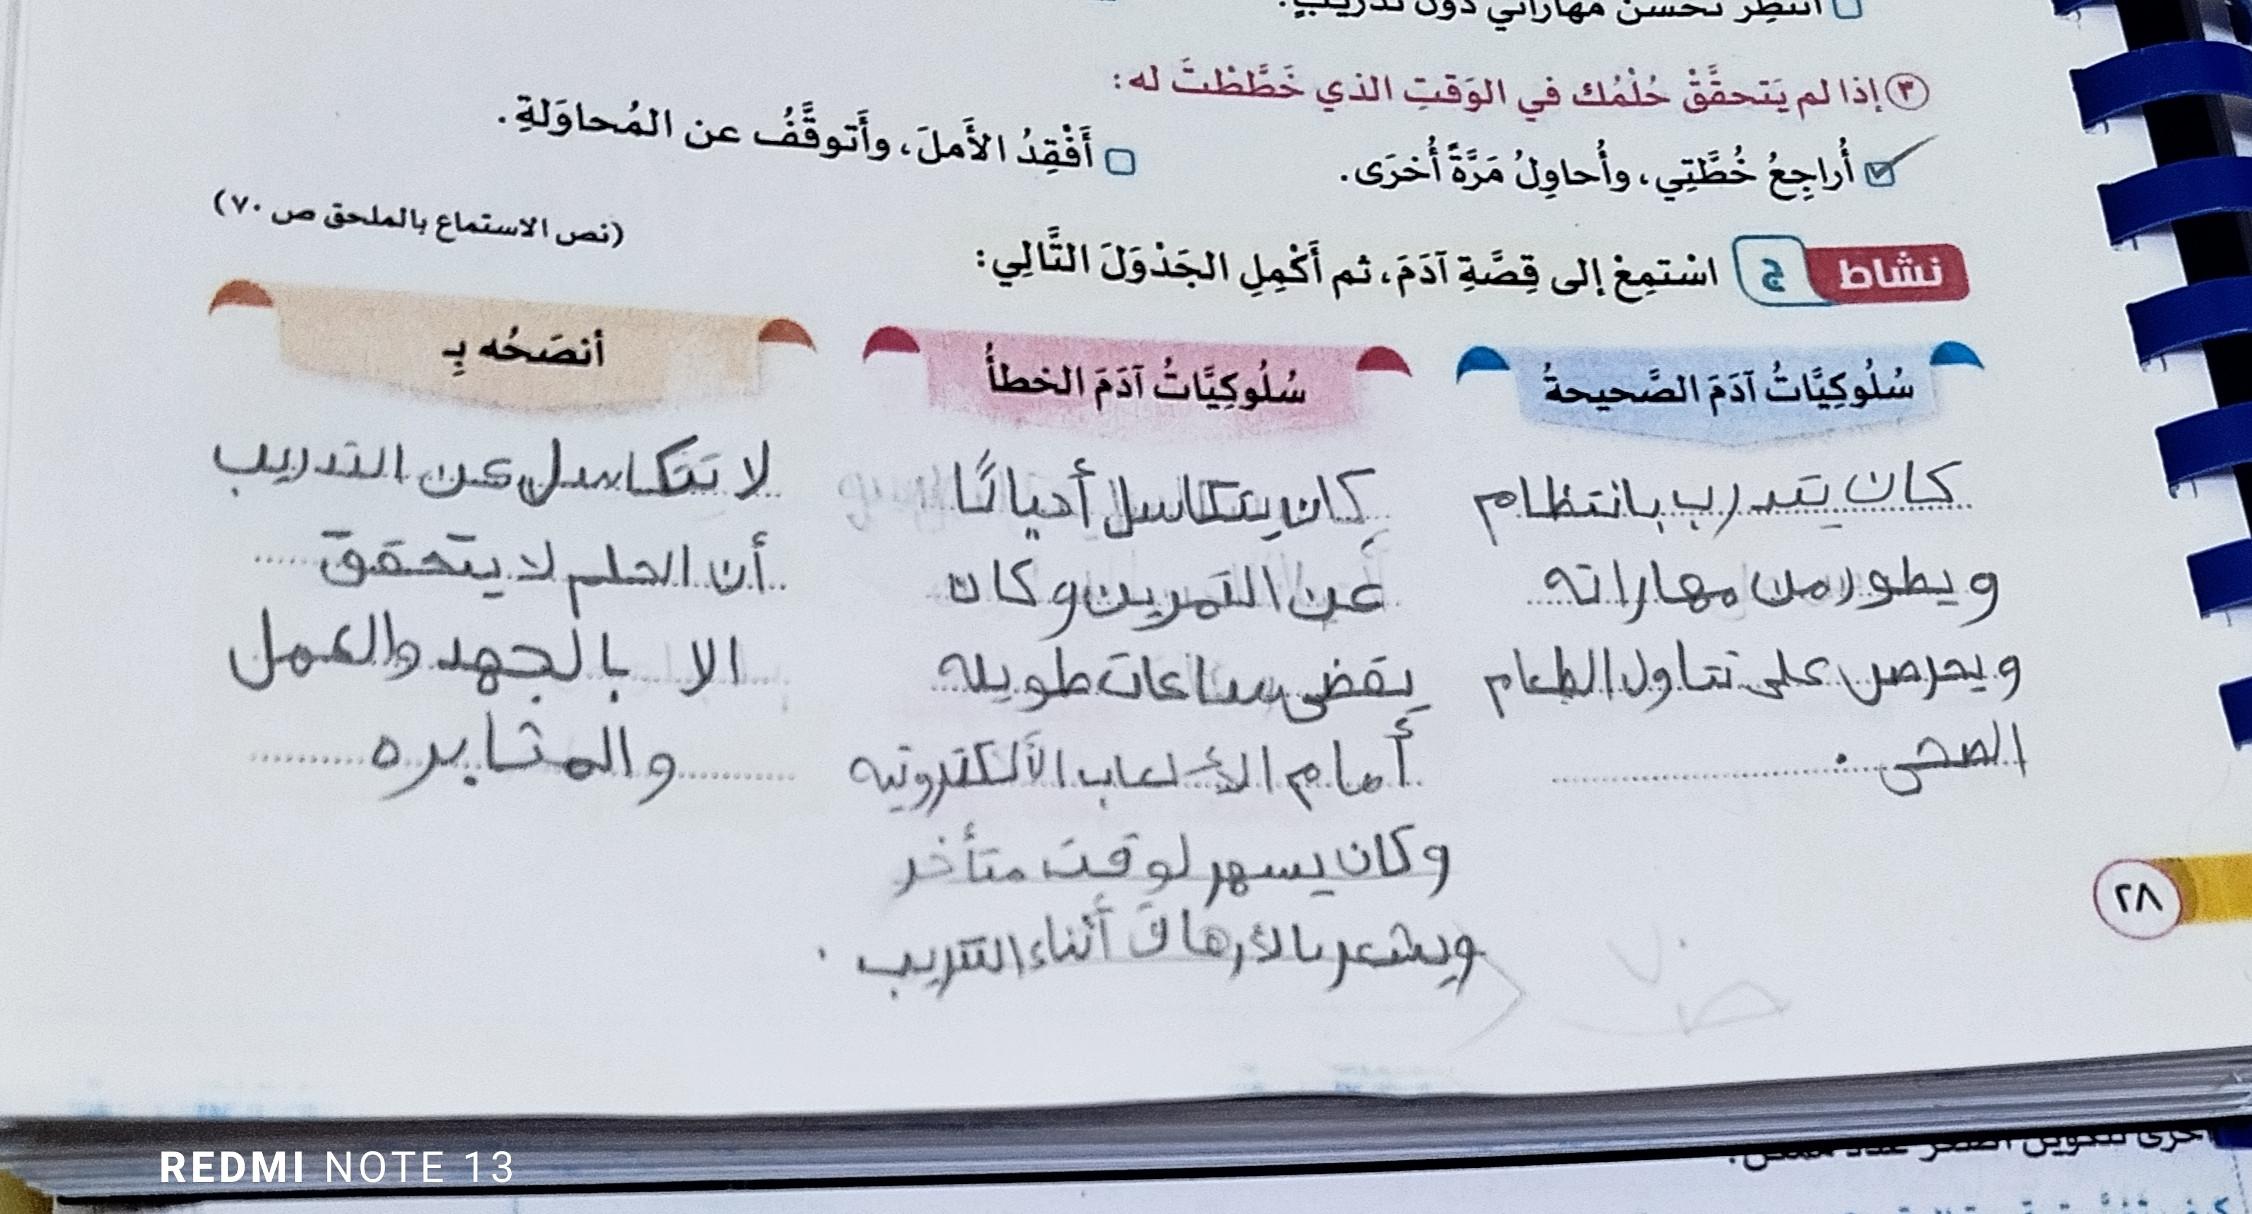 انتظر تحسن مهاراتي دون تدريبٍ.
٣ إذا لم يَتحقَّقْ حُلْمُك في الوَقتِ الذي خَطَّطْتَ له:
أُراجِعُ خُطَّتِي، وأُحاوِلُ مَرَّةً أُخرَى.
أَفْقِدُ الأَملَ، وأَتوقَّفُ عن المُحاوَلةِ.
(نص الاستماع بالملحق ص ٧٠)
نشاط ج اسْتمِعْ إلى قِصَّةِ آدَمَ، ثم أَكْمِلِ الجَدْوَلَ التَّالِي:
سُلُوكِيَّاتُ آدَمَ الصَّحيحةُ
كان يتدرب بانتظام
ويطور من مهاراته
ويحرص على تناول الطعام
الصحى .
سُلُوكِيَّاتُ آدَمَ الخطأُ
كان يتكاسل أحيانًا
عن التمرين وكان
يقضى ساعات طويله
أمام الألعاب الألكترونيه
وكان يسهر لوقت متأخر
ويشعر بالأرهاق أثناء التدريب .
أنصَحُه بِـ
لا تتكاسل عن التدريب
أن الحلم لا يتحقق
الا بالجهد والعمل
والمثابره
٢٨
REDMI NOTE 13